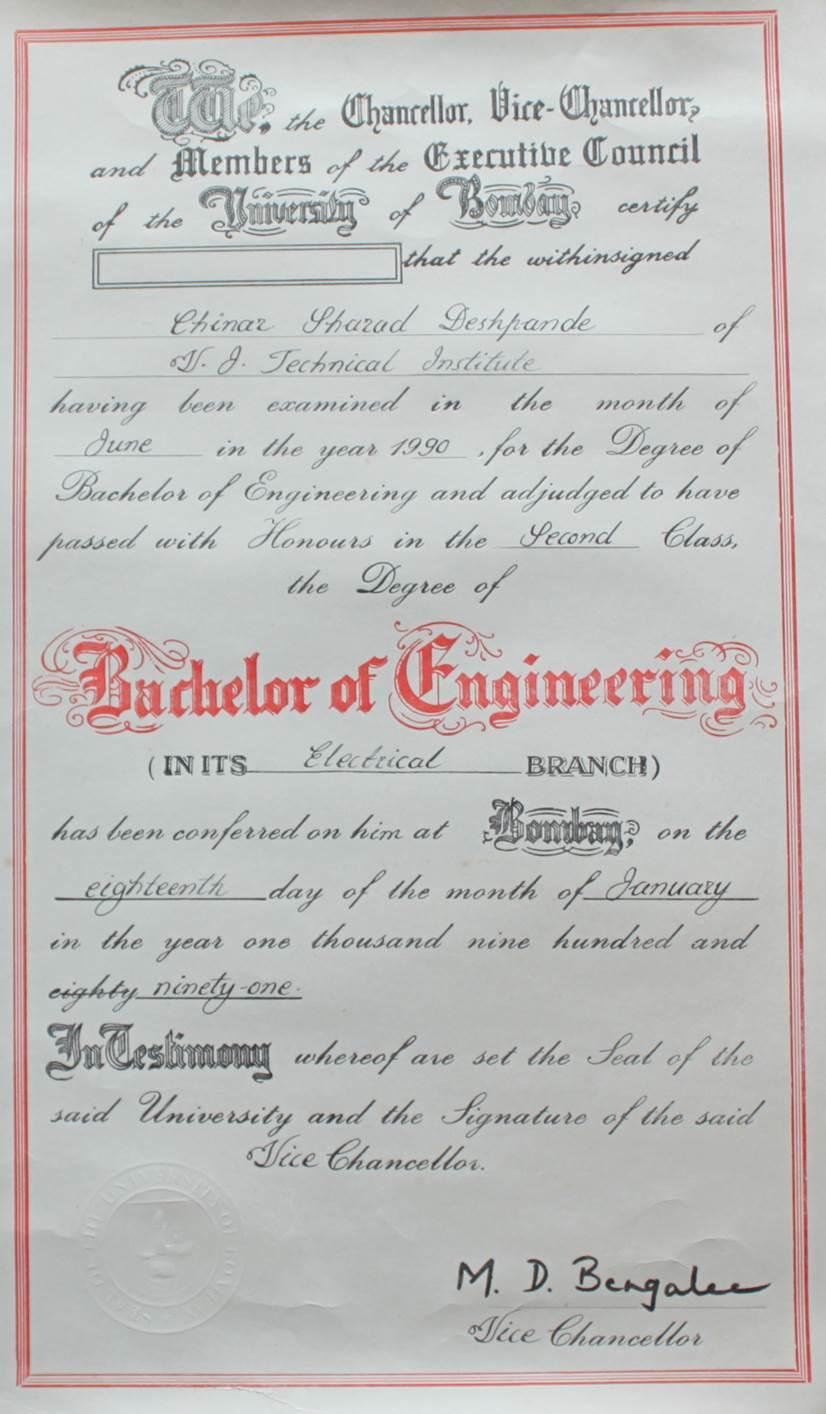 We, the Chancellor, Vice-Chancellor,
and Members of the Executive Council
of the University of Bombay, certify
that the withinsigned
Chinar Sharad Deshpande of
V. J. Technical Institute
having been examined in the month of
June in the year 1990, for the Degree of
Bachelor of Engineering and adjudged to have
passed with Honours in the Second Class,
the Degree of
Bachelor of Engineering
(IN ITS Electrical BRANCH)
has been conferred on him at Bombay, on the
eighteenth day of the month of January
in the year one thousand nine hundred and
eighty ninety-one.
In Testimony whereof are set the Seal of the
said University and the Signature of the said
Vice Chancellor.
SEAL OF THE UNIVERSITY OF BOMBAY
M. D. Bengalee
Vice Chancellor